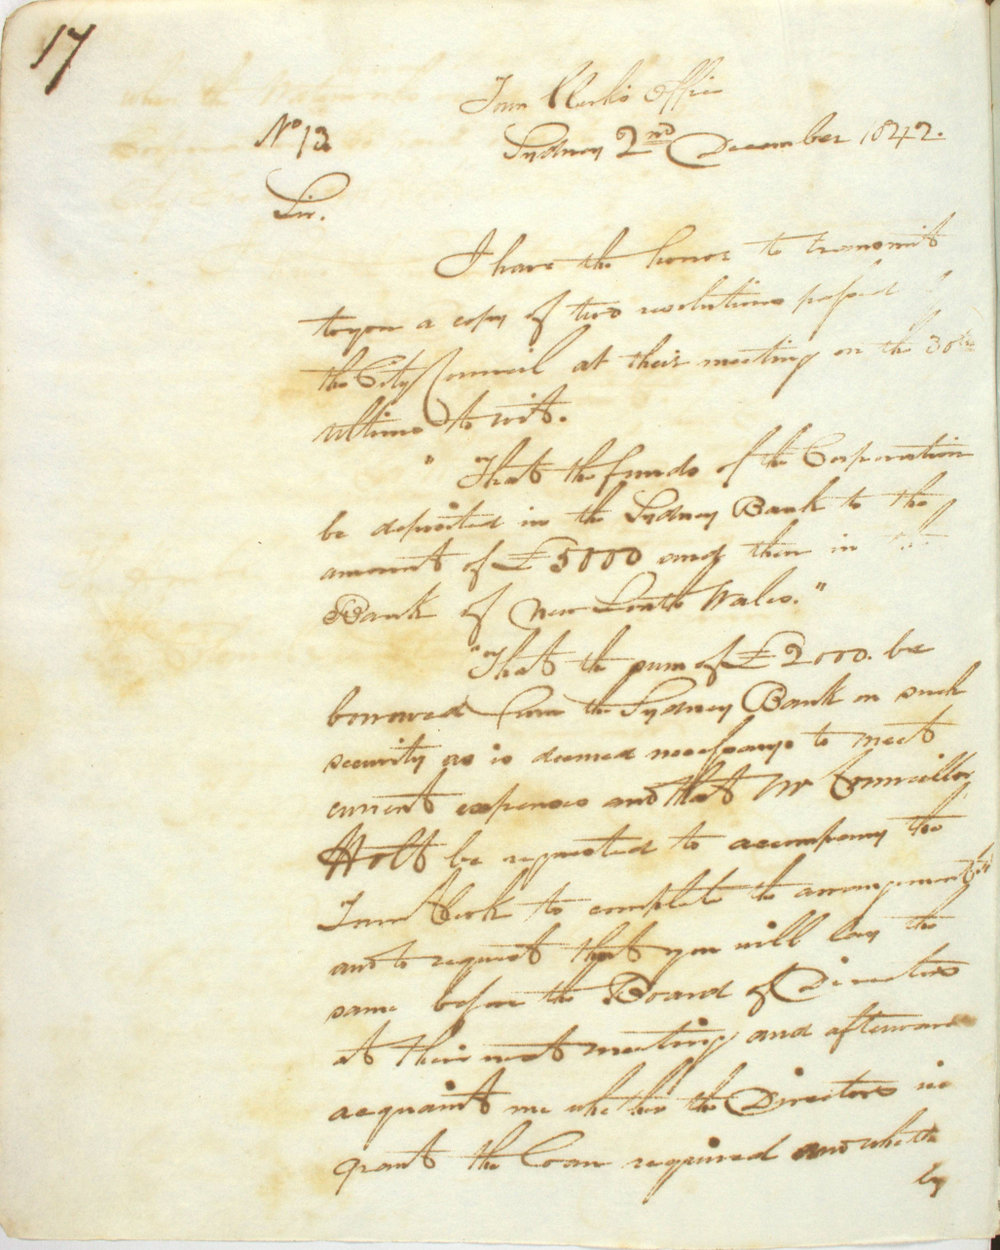 17
Town Clerk's Office
No 13 Sydney 2nd December 1842.
Sir.
I have the honor to transmit
to you a copy of two resolutions passed
the City Council at their meeting on the 30th
ultimo to wit.
"That the funds of the Corporation
be deposited in the Sydney Bank to the
amount of £5000 and then in the
Bank of New South Wales."
"That the sum of £2000. be
borrowed from the Sydney Bank on such
security as is deemed necessary to meet
current expenses and that Mr Councillor
Holt be requested to accompany the
Town Clerk to complete the arrangement
and to request that you will lay the
same before the Board of Directors
at their next meeting and afterward
acquaint me whether the Directors
grant the loan required and whether
by